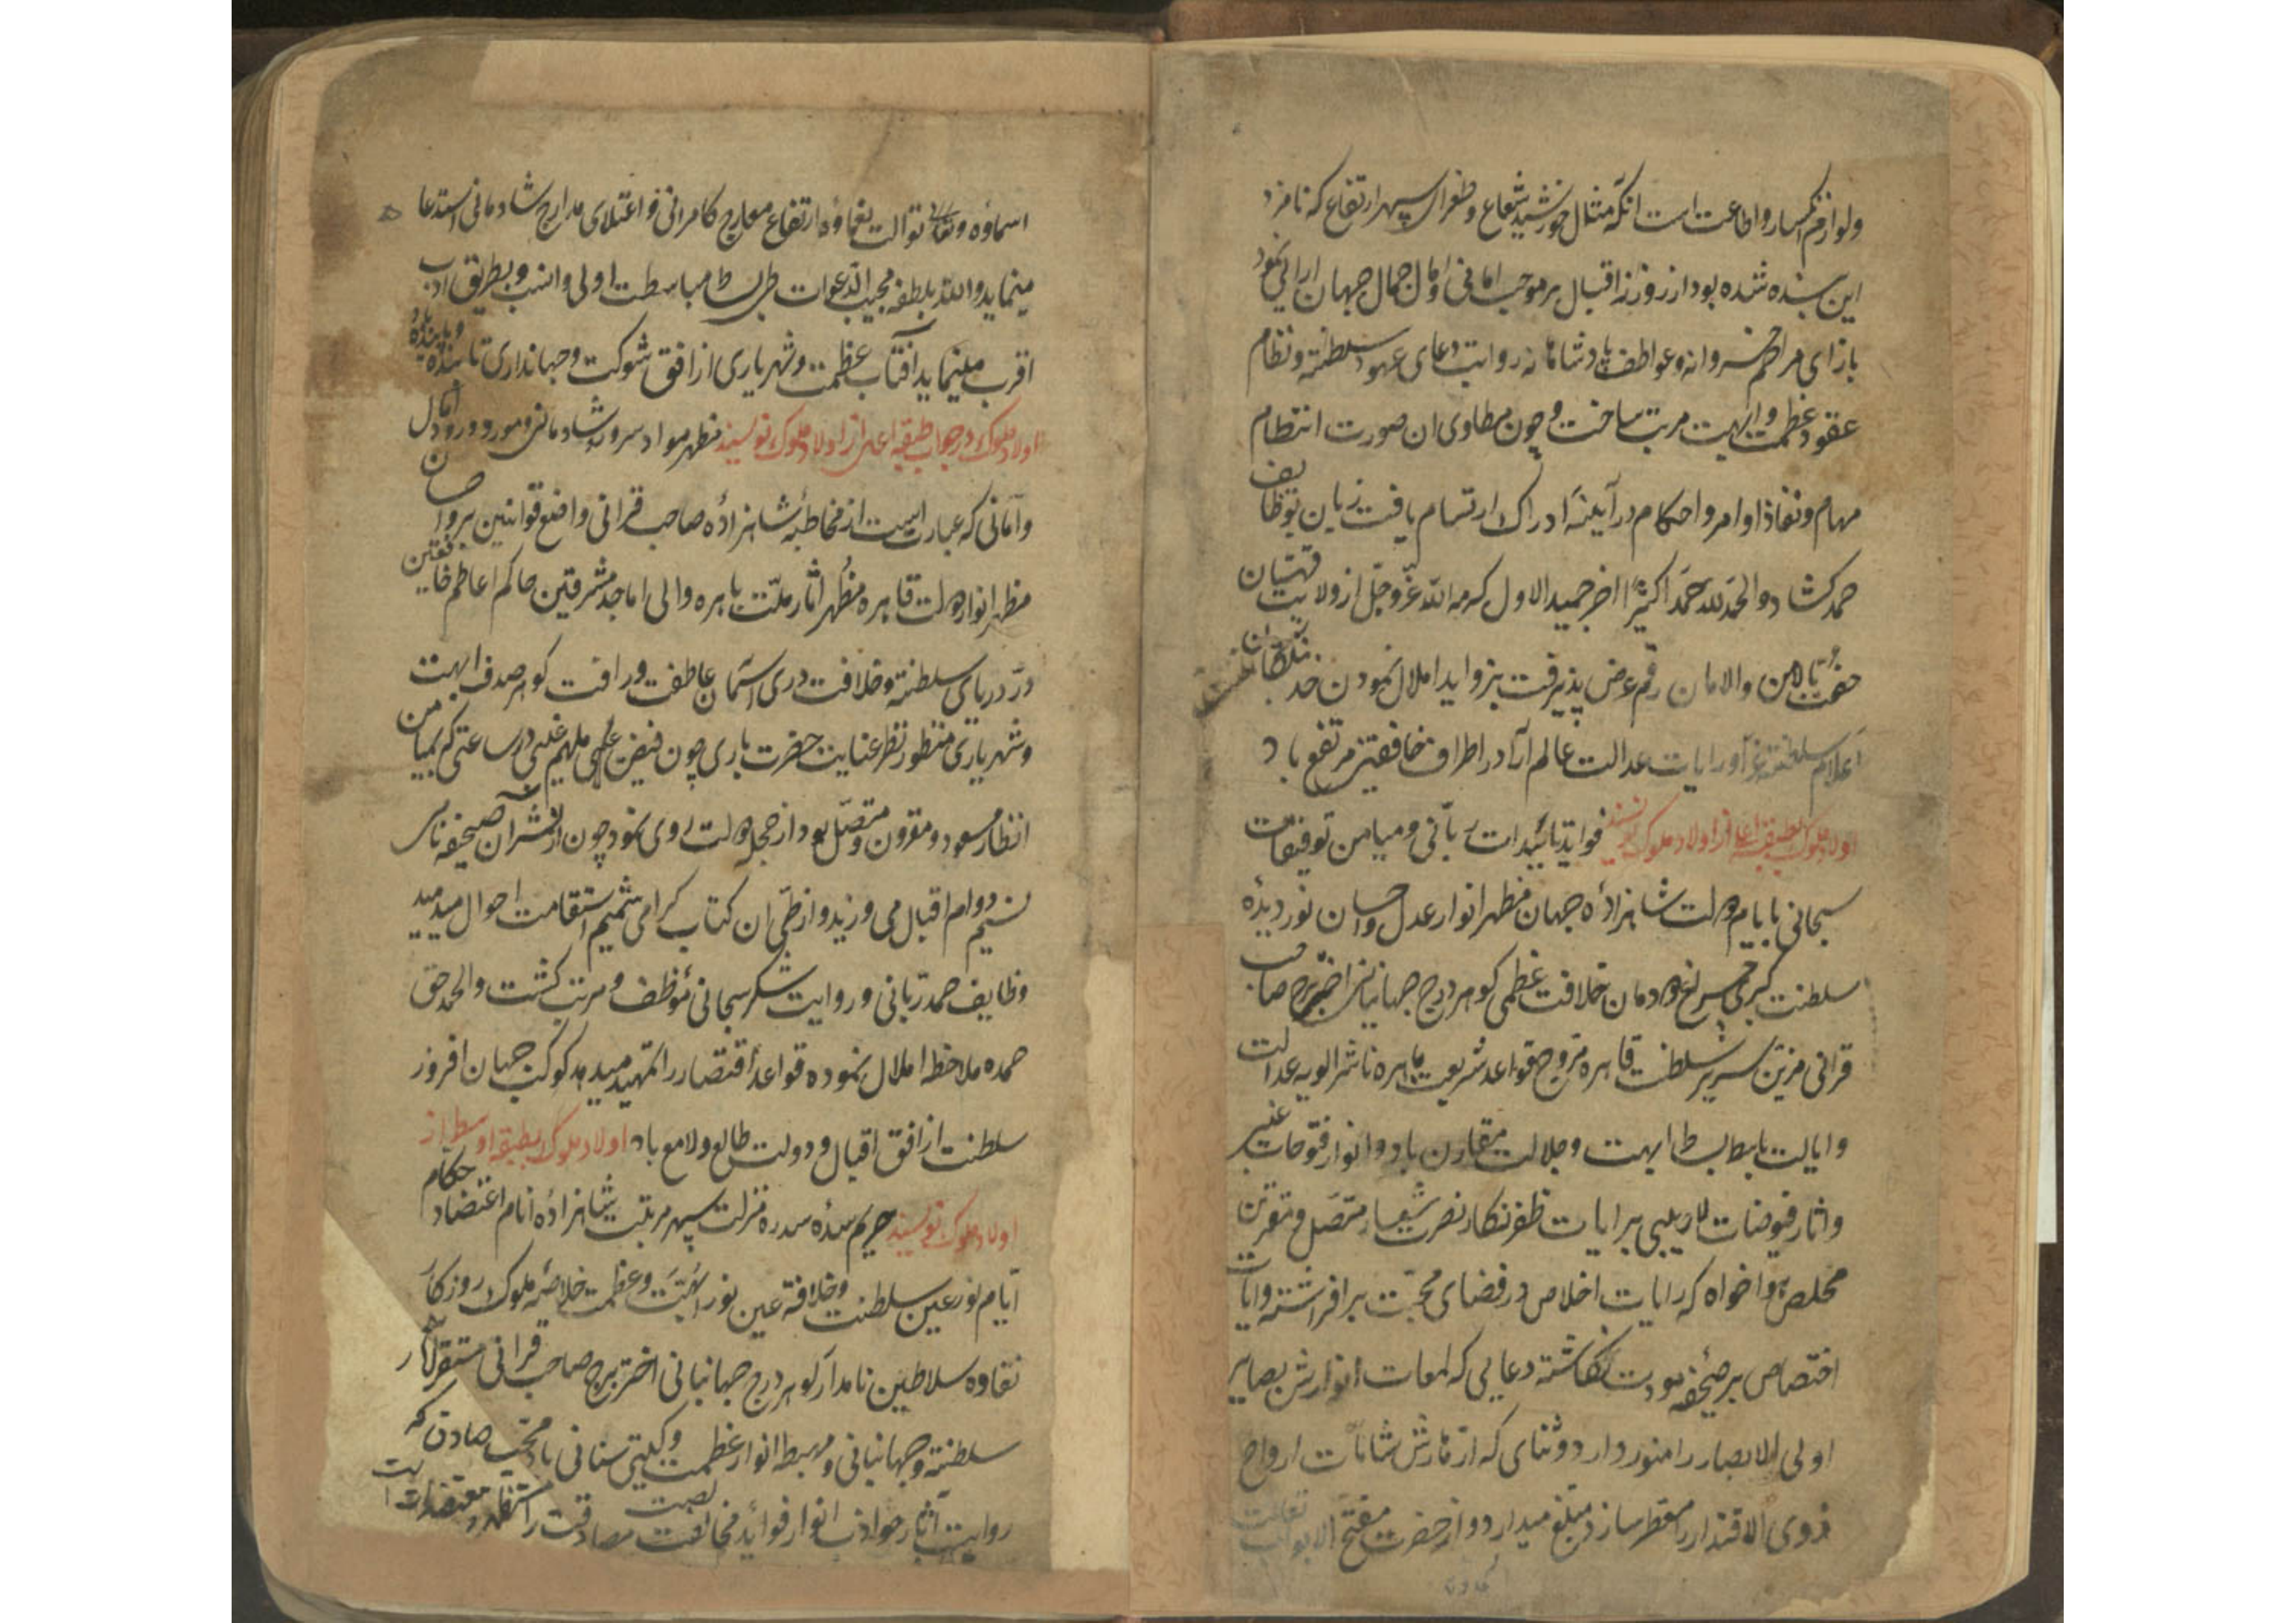 ولوازم انکسار و اطاعت است آنکه مثال خورشید شعاع و طغرای سپهر ارتفاع که نامزد
این بنده شده بود از روزنه اقبال بر موجب امانی و آمال جمال جهان آرای نمود
بازای مراحم خسروانه و عواطف پادشاهانه روایت دعای عهود سلطنة و نظام
عقود عظمت و ابهت مرتب ساخت و چون مطاوی ان صورت انتظام
مهام و نفاذ اوامر و احکام در آینهٔ ادراک ارتسام یافت زبان بوظایف
حمد کشاد و الحمد لله حمدا کثیرا اخر جمید الاول کرمه الله عز و جل از ولایت قهستان
حفت بالامن والامان رقم عرض پذیرفت بزواید املال نمودن حد بندگان نیست
اعلام سلطنت و رایات عدالت عالم آرا در اطراف خافقین مرتفع باد
اولاد ملوک بطبقه اعلی از اولاد ملوک نویسند فواید تائیدات ربانی و میامن توفیقات
سبحانی بایام دولت شاهزادهٔ جهان مظهر انوار عدل و احسان نور دیدهٔ
سلطنت کبری چراغ دودمان خلافت عظمی کوهر درج جهانبانی اختر برج صاحب
قرانی مزین سریر سلطنت قاهره مروج قواعد شریعت باهره ناشر الویه عدالت
و ایالت باسط بساط ابهت و جلالت مقارن باد و انوار فتوحات غیبی
و اثار فیوضات لاریبی برایات ظفر نکار نصرت شعار متصل و مقرن
مخلص هواخواه که رایات اخلاص در فضای محبت برافراشته و ایات
اختصاص بر صحیفه مودت نکاشته دعایی که لمعات انوارش بصایر
اولی الابصار را منور دارد و ثنای که از آثارش شامات ارواح
ذوی الاقتدار را معطر سازد مبلغ میدارد و از حضرت مفتح الابواب تعالت
اسماؤه و توالت نعماؤه ارتفاع معارج کامرانی و اعتلای مدارج شادمانی استدعا
مینماید و الله بلطفه مجیب الدعوات طی بساط مباسطت اولی و انسب و بطریق ادب
اقرب مینماید آفتاب عظمت و شهریاری از افق شوکت و جهانداری تابنده و پاینده باد
اولاد ملوک در جواب طبقه اعلی از اولاد ملوک نویسند مظهر مواد سرور و شادمانی و مورد ورود آمال
و امانی که عبارت است از مخاطبهٔ شاهزادهٔ صاحب قرانی واضع قوانین بر و احسان
مظهر انوار دولت قاهره مظهر آثار ملت باهره والی اماجد مشرقین حاکم اعاظم خافقین
در دریای سلطنة و خلافت دری آسمان عاطفت و رافت کوهر صدف ابهت
و شهریاری منظور نظر عنایت حضرت باری چون فیض ملهم غیبی در ساعتی که بمیامن
انظار مسعود و مقرون و متصل بود از حجله دولت روی نمود چون از نشر آن صحیفه نامی
نسیم دوام اقبال می وزید و از طی ان کتاب کرامی شمیم استقامت احوال میدمید
وظایف حمد ربانی و روایت شکر سبحانی موظف و مرتب کشت و الحمد حق
حمده ملاحظه املال نموده قواعد اقتصار را تمهید میدهد کوکب جهان افروز
سلطنت از افق اقبال و دولت طالع و لامع باد اولاد ملوک بطبقه اوسط از حکام
اولاد ملوک نویسند حریم سدهٔ سدره منزلت سپهر مرتبت شاهزادهٔ انام اعتضاد
ایام نور عین سلطنت و خلافة عین نور ابهت و عظمت خلاصه ملوک روزکار
نقاوه سلاطین نامدار کوهر درج جهانبانی اختر برج صاحب قرانی مستقر آثار
سلطنة و جهانبانی و مهبط انوار عظمت و کیتی ستانی باد محب صادق که
روایت آثار جواذب انوار فوائد مخالصت مصادقت را